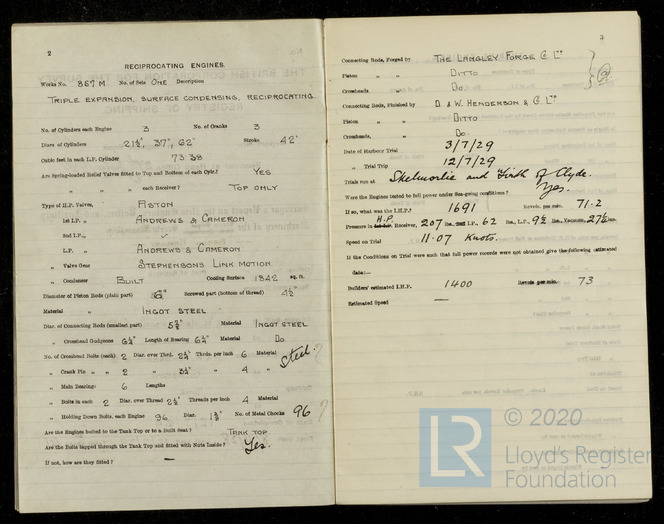 2
RECIPROCATING ENGINES.
Works No. 867 M No. of Sets ONE Description
TRIPLE EXPANSION, SURFACE CONDENSING, RECIPROCATING
No. of Cylinders each Engine 3 No. of Cranks 3
Diars of Cylinders 21½", 37", 62" Stroke 42"
Cubic feet in each L.P. Cylinder 73.38
Are Spring-loaded Relief Valves fitted to Top and Bottom of each Cylr.? YES
" " " each Receiver? TOP ONLY
Type of H.P. Valves, PISTON
1st I.P. " ANDREWS & CAMERON
2nd I.P. " ✓
L.P. " ANDREWS & CAMERON
" Valve Gear STEPHENSONS LINK MOTION
" Condenser BUILT Cooling Surface 1842 sq. ft.
Diameter of Piston Rods (plain part) 6" Screwed part (bottom of thread) 4½"
Material " INGOT STEEL
Diar. of Connecting Rods (smallest part) Material INGOT STEEL
" Crosshead Gudgeons 6¼" Length of Bearing 6¾" Material DO
No. of Crosshead Bolts (each) 2 Diar. over Thrd. 2¼" Thrds. per inch 6 Material Steel
" Crank Pin " " 2 " 3¼" " 4 "
" Main Bearings 6 Lengths
" Bolts in each 2 Diar. over Thread 2½" Threads per inch 4 Material
" Holding Down Bolts, each Engine 96 Diar. No. of Metal Chocks 96 ?
Are the Engines bolted to the Tank Top or to a Built Seat? TANK TOP
Are the Bolts tapped through the Tank Top and fitted with Nuts Inside? Yes.
If not, how are they fitted? —
Connecting Rods, Forged by THE LANGLEY FORGE Co. Ltd
Piston " " DITTO
Crossheads, " DO.
Connecting Rods, Finished by D. & W. HENDERSON & Co. Ltd
Piston " " DITTO
Crossheads, " DO.
Date of Harbour Trial 3/7/29
" Trial Trip 12/7/29
Trials run at Skelmorlie and Firth of Clyde.
Were the Engines tested to full power under Sea-going conditions? Yes.
If so, what was the I.H.P.? 1691 Revols. per min. 71.2
Pressure in H.P. Receiver, 207 lbs., I.P. 62 lbs., L.P., 9½ lbs., Vacuum, 27½ ins.
Speed on Trial 11.07 Knots.
If the Conditions on Trial were such that full power records were not obtained give the following estimated
data:—
Builders' estimated I.H.P. 1400 Revols. per min. 73
Estimated Speed —
© 2020
LR
Lloyd's Register
Foundation